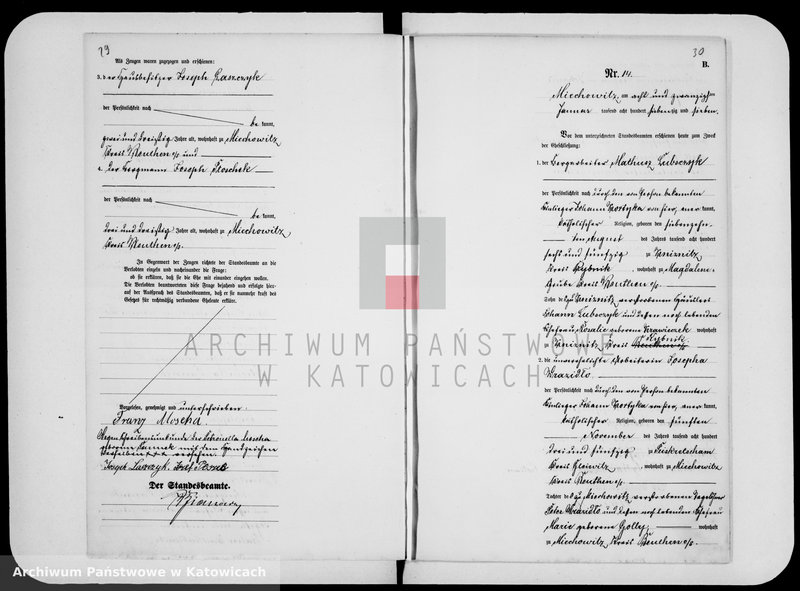 29
Als Zeugen waren zugezogen und erschienen:
3. der Hausbesitzer Joseph
der Persönlichkeit nach
be kannt,
zwei und dreißig Jahre alt, wohnhaft zu Miechowitz
Kreis Beuthen o/s und
4. der Bergmann Joseph
der Persönlichkeit nach
be kannt,
drei und dreißig Jahre alt, wohnhaft zu Miechowitz
Kreis Beuthen o/s.
In Gegenwart der Zeugen richtete der Standesbeamte an die
Verlobten einzeln und nacheinander die Frage:
ob sie erklären, daß sie die Ehe mit einander eingehen wollen.
Die Verlobten beantworteten diese Frage bejahend und erfolgte hier-
auf der Ausspruch des Standesbeamten, daß er sie nunmehr kraft des
Gesetzes für rechtmäßig verbundene Eheleute erkläre.
Vorgelesen, genehmigt und unterschrieben
Franz Moscha
Wegen Schreibensunkunde der Petronella Moscha
geborenen mit dem Handzeichen
versehen
Joseph
Der Standesbeamte.
30
B.
Nr. 14.
Miechowitz am acht und zwanzigsten
Januar tausend acht hundert siebenzig und sieben.
Vor dem unterzeichneten Standesbeamten erschienen heute zum Zweck
der Eheschließung:
1. der Bergarbeiter Matheus Lubsczyk
der Persönlichkeit nach durch den von Person bekannten
Einlieger Johann von hier, aner kannt,
katholischer Religion, geboren den siebenzehn-
ten August des Jahres tausend acht hundert
sechs und fünfzig zu
Kreis Rybnik, wohnhaft zu Magdalene-
Grube Kreis Beuthen o/s.
Sohn des zu verstorbenen Häusler
Johann Lubsczyk und dessen noch lebenden
Ehefrau Rosalie geborene Krawieczek wohnhaft
Rybnik
zu Kreis Beuthen o/s
2. die unverehelichte Arbeiterin Josepha
Wrazidlo
der Persönlichkeit nach durch den von Person bekannten
Einlieger Johann von hier, aner kannt,
katholischer Religion, geboren den fünften
November des Jahres tausend acht hundert
drei und fünfzig zu
Kreis Gleiwitz, wohnhaft zu Miechowitz
Kreis Beuthen o/s.
Tochter des zu Miechowitz verstorbenen Tagelöhner
Peter Wrazidlo und dessen noch lebenden Ehefrau
Marie geborene Golly, wohnhaft
zu Miechowitz Kreis Beuthen o/s.
ARCHIWUM PAŃSTWOWE
W KATOWICACH
Archiwum Państwowe w Katowicach